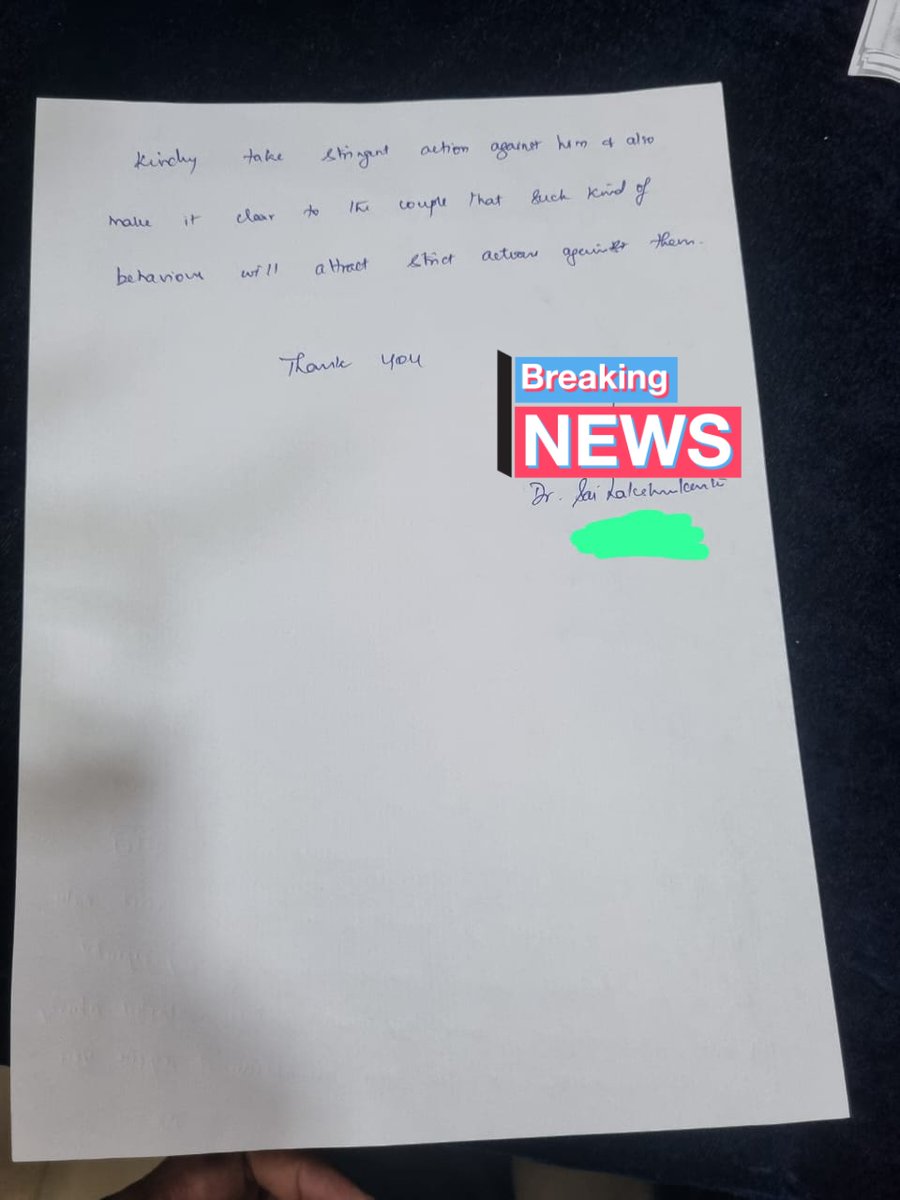 Kindly take stringent action against him & also
make it clear to the couple that such kind of
behaviour will attract strict actions against them.
Thank you
Breaking
NEWS
Dr. Sai